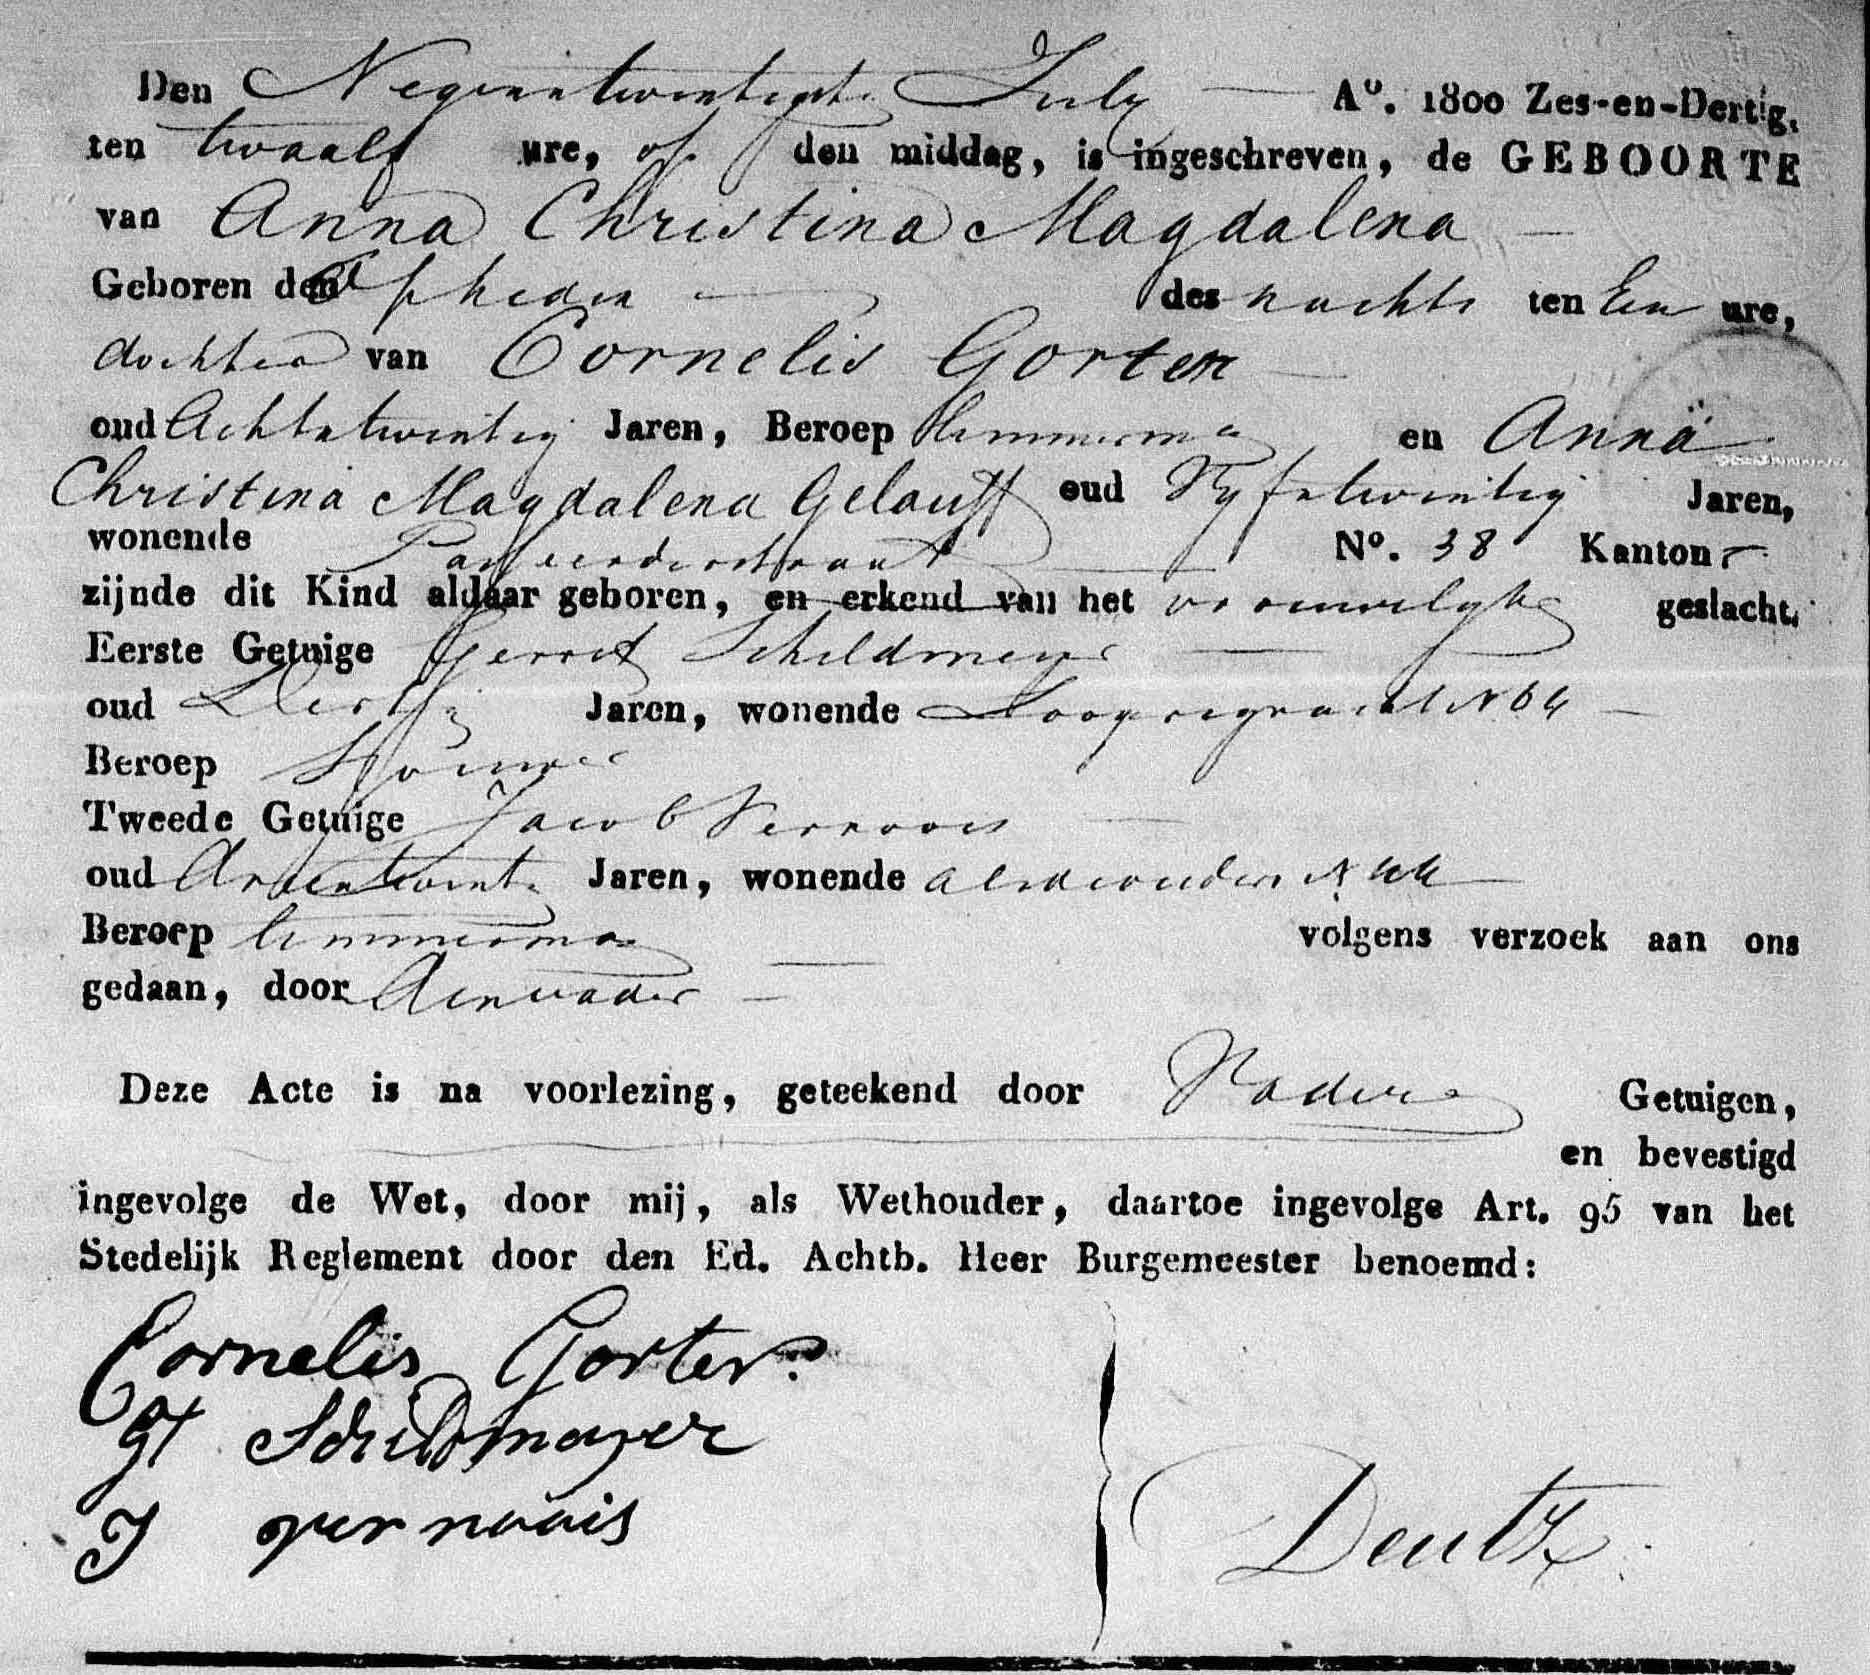 Den Negenentwintigste July A°. 1800 Zes-en-Dertig,
ten twaalf ure, op den middag, is ingeschreven, de GEBOORTE
van Anna Christina Magdalena
Geboren den Opheden des nachts ten Een ure,
dochter van Cornelis Gorter
oud Achtentwintig Jaren, Beroep timmerman en Anna
Christina Magdalena Gelauff oud Vyfentwintig Jaren,
wonende Passeerderstraat N°. 38 Kanton
zijnde dit Kind aldaar geboren, en erkend van het vrouwelyke geslacht.
Eerste Getuige Gerrit Schildmeyer
oud Dertig Jaren, wonende Looyersgracht N 64
Beroep
Tweede Getuige Jacob Vernoois
oud Jaren, wonende
Beroep timmerman volgens verzoek aan ons
gedaan, door den vader
Deze Acte is na voorlezing, geteekend door Vader en Getuigen,
en bevestigd
ingevolge de Wet, door mij, als Wethouder, daartoe ingevolge Art. 95 van het
Stedelijk Reglement door den Ed. Achtb. Heer Burgemeester benoemd:
Cornelis Gorter.
Gt Schildmayer
J vernoois
Deutz